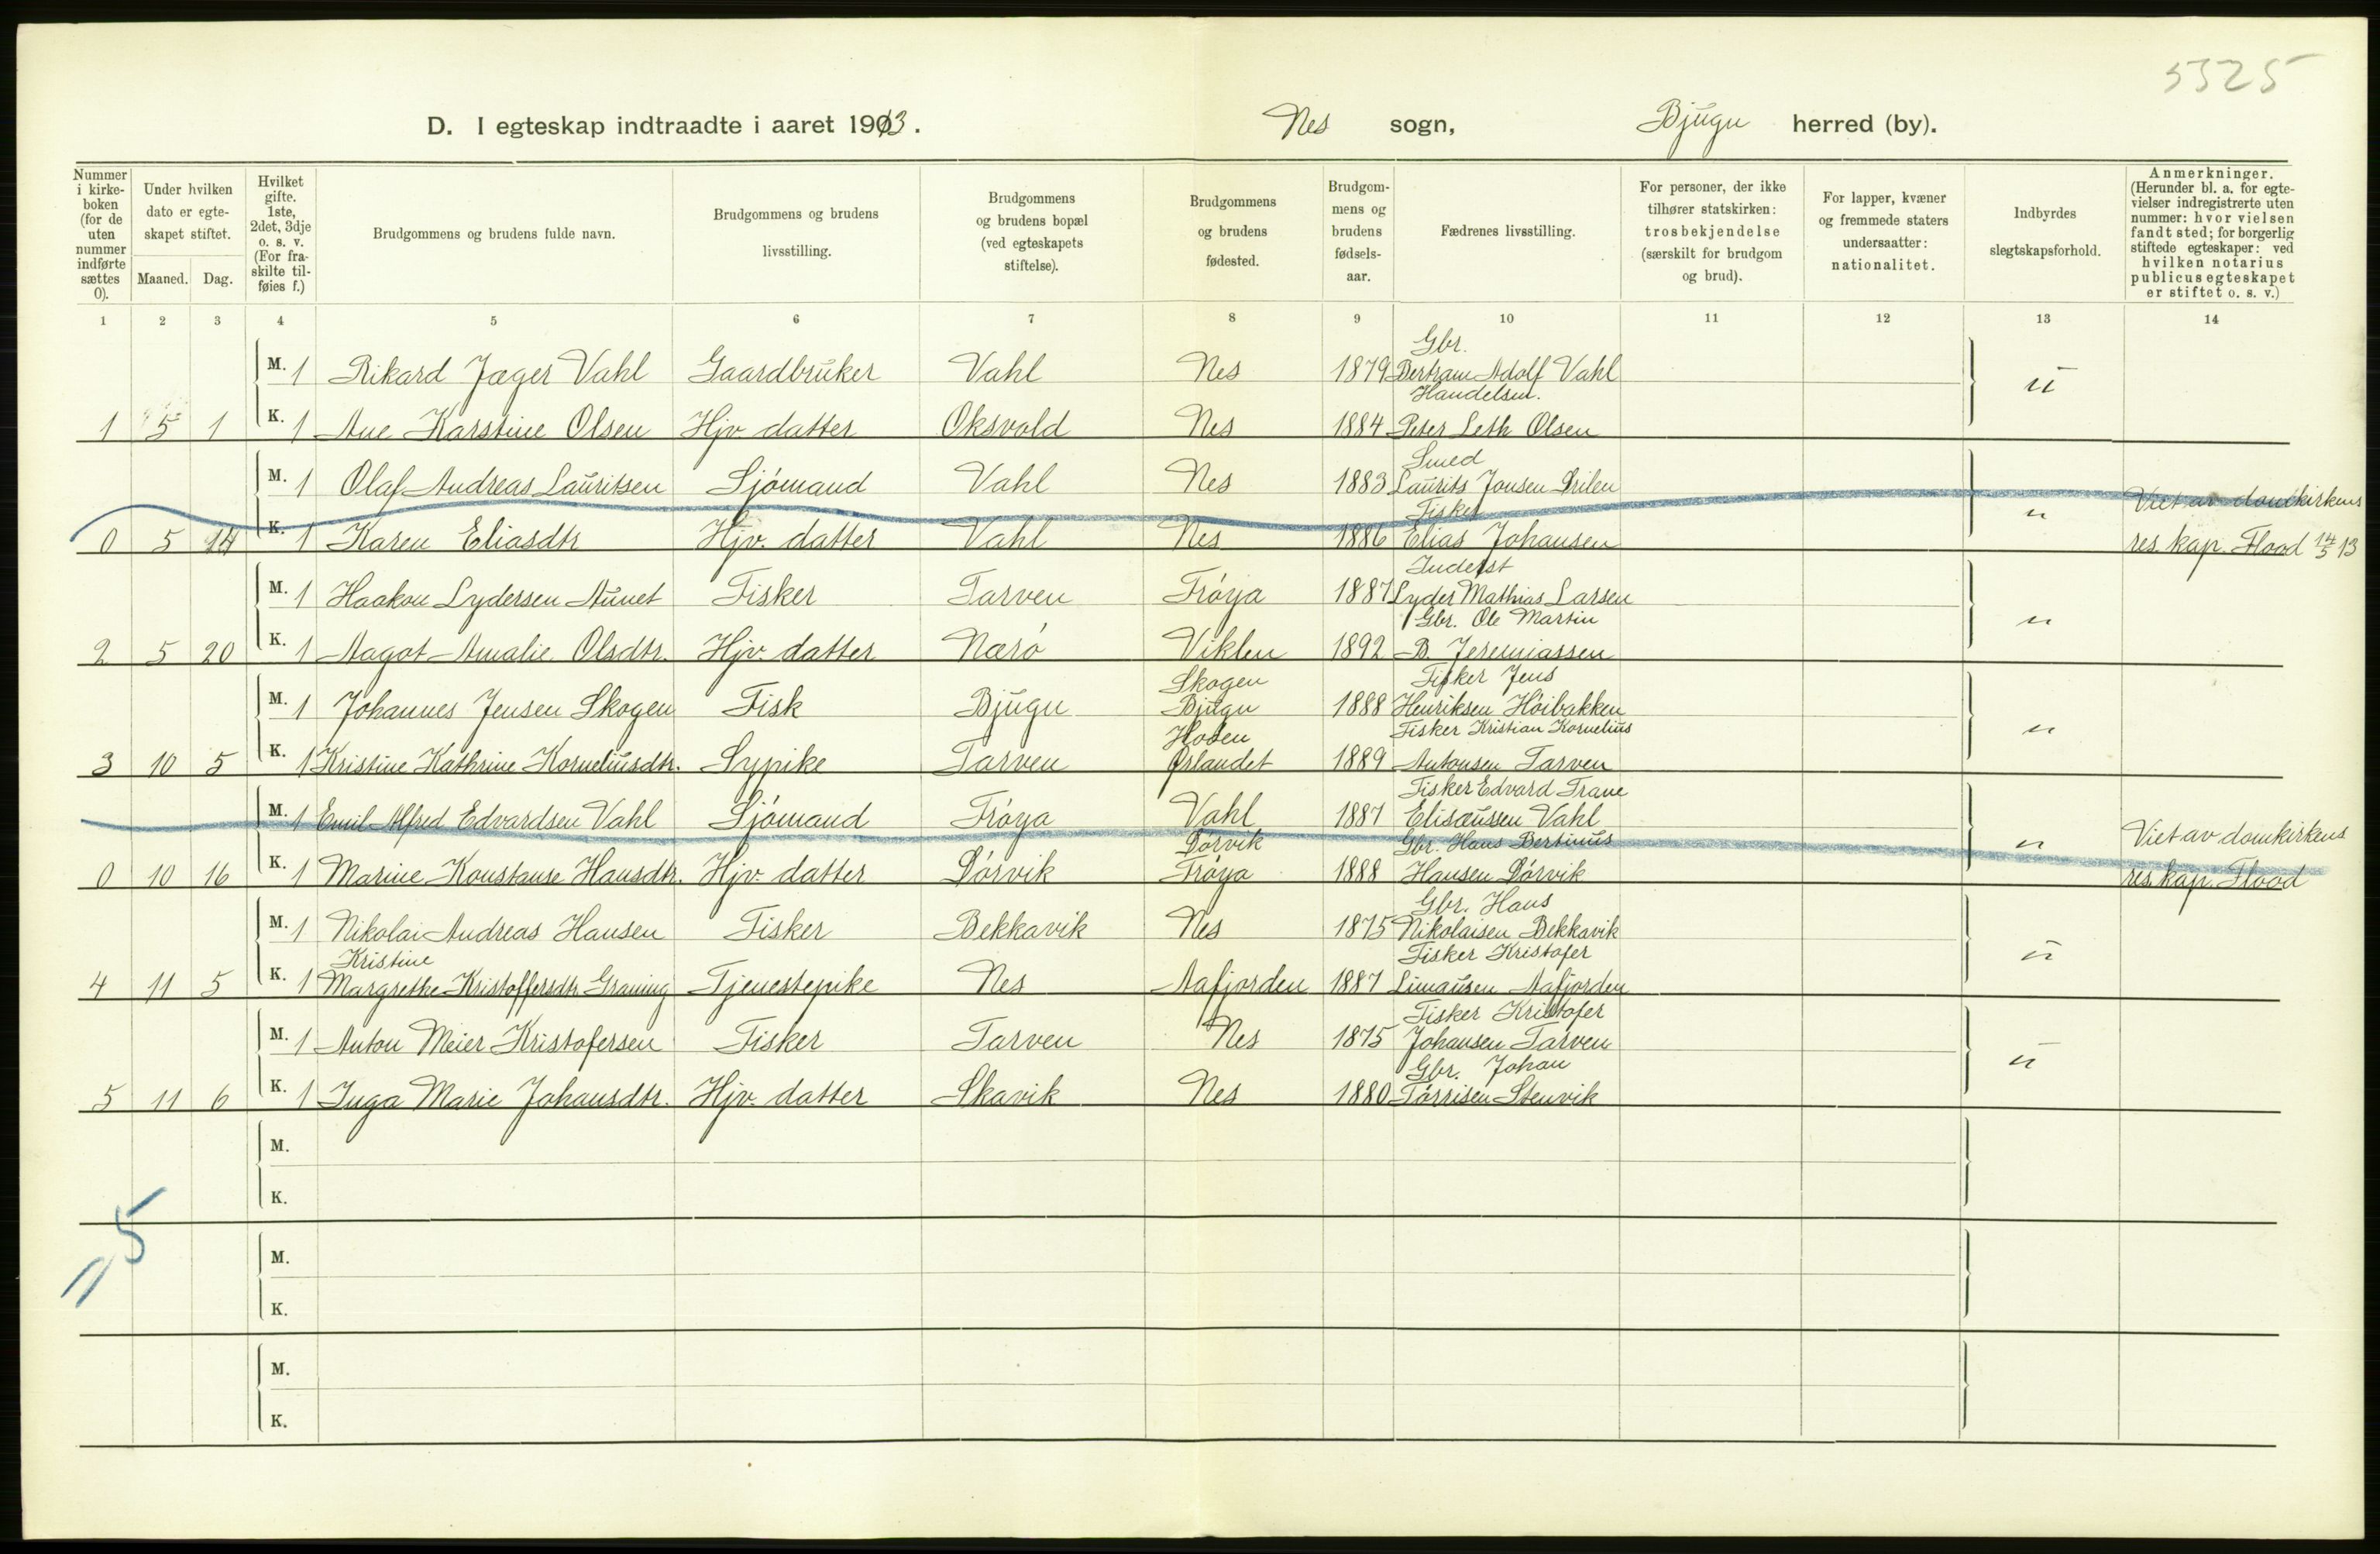 5525
D. I egteskap indtraadte i aaret 1913.
Nes sogn, Bjugn herred (by).
Nummer i kirke-boken (for de uten nummer indførte sættes 0).
Under hvilken dato er egte-skapet stiftet.
Maaned. Dag.
Hvilket gifte. 1ste, 2det, 3dje o. s. v. (For fra-skilte til-føies f.)
Brudgommens og brudens fulde navn.
Brudgommens og brudens livsstilling.
Brudgommens og brudens bopæl (ved egteskapets stiftelse).
Brudgommens og brudens fødested.
Brudgom-mens og brudens fødsels-aar.
Fædrenes livsstilling.
For personer, der ikke tilhører statskirken: trosbekjendelse (særskilt for brudgom og brud).
For lapper, kvæner og fremmede staters undersaatter: nationalitet.
Indbyrdes slegtskapsforhold.
Anmerkninger. (Herunder bl. a. for egte-vielser indregistrerte uten nummer: hvor vielsen fandt sted; for borgerlig stiftede egteskaper: ved hvilken notarius publicus egteskapet er stiftet o. s. v.)
1 2 3 4 5 6 7 8 9 10 11 12 13 14
M. 1 Rikard Jæger Vahl Gaardbruker Vahl Nes 1879 Gbr. Bertram Adolf Vahl n
1 5 1 K. 1 Ane Karstine Olsen Hjv. datter Oksvold Nes 1884 Handelsm. Peter Leth Olsen
M. 1 Olaf Andreas Lauritsen Sjómand Vahl Nes 1883 Smed Laurits Jonsen n Viet av domkirkens
0 5 14 K. 1 Karen Eliasdtr Hjv. datter Vahl Nes 1886 Fisker Elias Johansen res. kap. Flood 14/5 13
M. 1 Haakon Lydersen Aunet Fisker Tarven Fróya 1887 Inderst Lyder Mathias Larsen n
2 5 20 K. 1 Aagot Amalie Olsdtr. Hjv. datter Næró Viklen 1892 Gbr. Ole Martin B. Jeremiassen
M. 1 Johannes Jensen Skogen Fisk Bjugn Skogen Bjugn 1888 Fisker Jens Henriksen Hóibakken n
3 10 5 K. 1 Kristine Kathrine Korneliusdtr. Sypike Tarven Hoven Ørlandet 1889 Fisker Kristian Kornelius Antonsen Tarven
M. 1 Emil Alfred Edvardsen Vahl Sjómand Fróya Vahl 1887 Fisker Edvard Trane Elisæussen Vahl n Viet av domkirkens
0 10 16 K. 1 Marine Konstanse Hansdtr. Hjv. datter Dórvik Dórvik Fróya 1888 Gbr. Hans Bertinius Hansen Dórvik res. kap. Flood
M. 1 Nikolai Andreas Hansen Fisker Bekkavik Nes 1875 Gbr. Hans Nikolaisen Bekkavik n
4 11 5 K. 1 Kristine Margrethe Kristoffersdtr. Graning Tjenestepike Nes Aafjorden 1887 Fisker Kristofer Aafjorden
M. 1 Anton Meier Kristofersen Fisker Tarven Nes 1875 Fisker Kristofer Johansen Tarven n
5 11 6 K. 1 Inga Marie Johansdtr. Hjv. datter Skavik Nes 1880 Gbr. Johan Tórrisen Stenvik
M.
K.
M.
K.
M.
K.
5